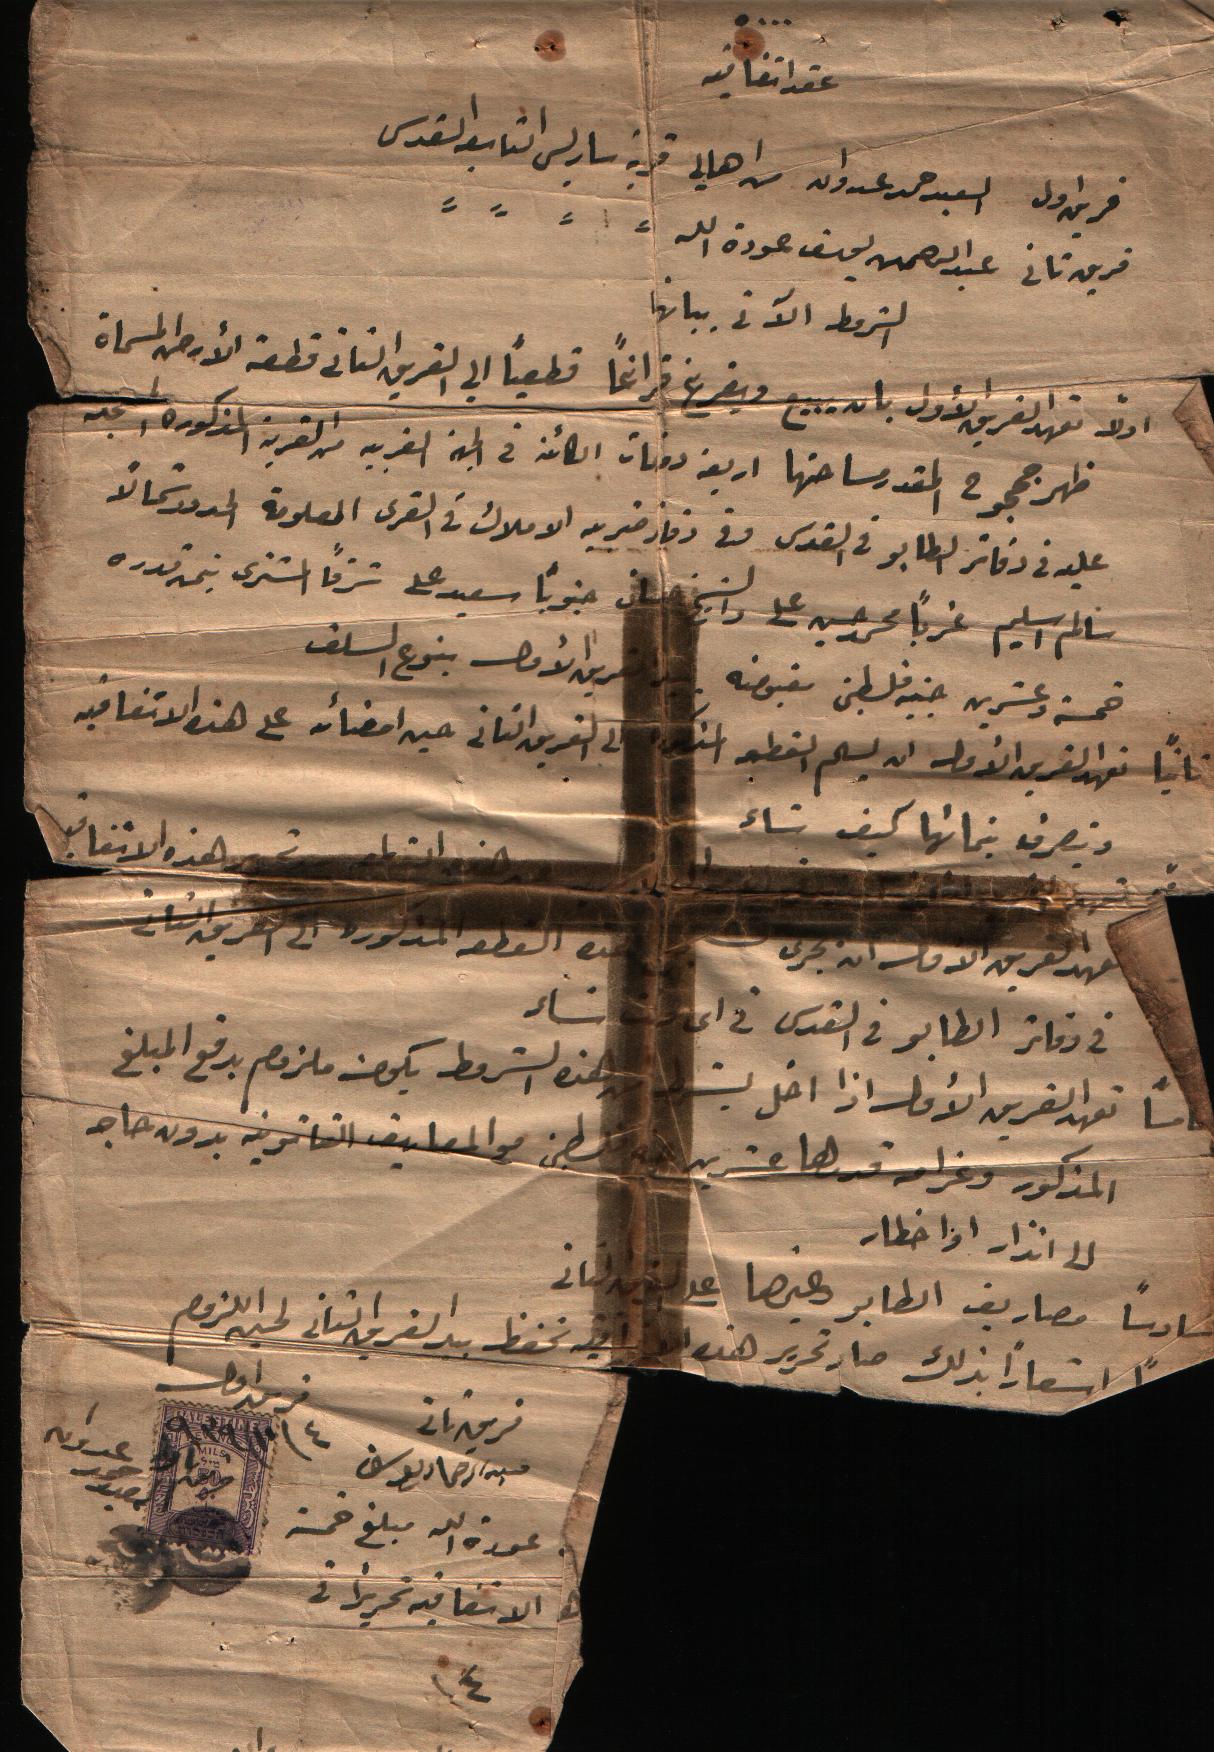 عقد اتفاقيه
فريق اول السعيد حمد عدوان من اهالي قرية ساريس التابعه القدس
فريق تاني عبد الرحمن يوسف عودة الله
الشروط الآتي بيانها
اولاً تعهد الفريق الأول بان يبيع ويفرغ فراغاً قطعياً الي الفريق التاني قطعة الأرض المسماة
ظهر جحجوح المقدر مساحتها اربعة دونمات الكائنه في الجهة الغربيه من القرية المذكوره المسجله
عليه في دفاتر الطابو في القدس وفي دفاتر ضريبه الاملاك في القرى المعلومة المحدود شمالاً
سالم اسليم غرباً محمد حسين علي والشيخ جنوباً سعيد علي شرقاً المشتري بثمن قدره
خمسة وعشرين جنيه فلسطيني مقبوضه الفريق الأول بنوع السلف
ثانياً تعهد الفريق الأول ان يسلم القطعه المذكوره الى الفريق التاني حين امضائه على هذه الاتفاقيه
ويتصرف كيف يشاء
تحرير هذه الاتفاقيه
تعهد الفريق الأول ان يجري هذه القطعه المذكوره الى الفريق التاني
في دفاتر الطابو في القدس في اي وقت يشاء
خامساً تعهد الفريق الأول اذا اخل بشرط من هذه الشروط يكون ملزوم بدفع المبلغ
المذكور وغرامه قدرها عشرين فلسطيني مع المصاريف القانونيه بدون حاجه
الى انذار او اخطار
سادساً مصاريف الطابو وغيرها على الفريق التاني
اشعاراً بذلك صار تحرير هذه الاتفاقيه تحفظ بيد الفريق التاني لحين اللزوم
فريق تاني فريق اول
عبد الرحمن يوسف
عودة الله مبلغ خمسة
الاتفاقيه تحريراً في
١٤
سعيد حمد عدوان
PALESTINE
MILS
50